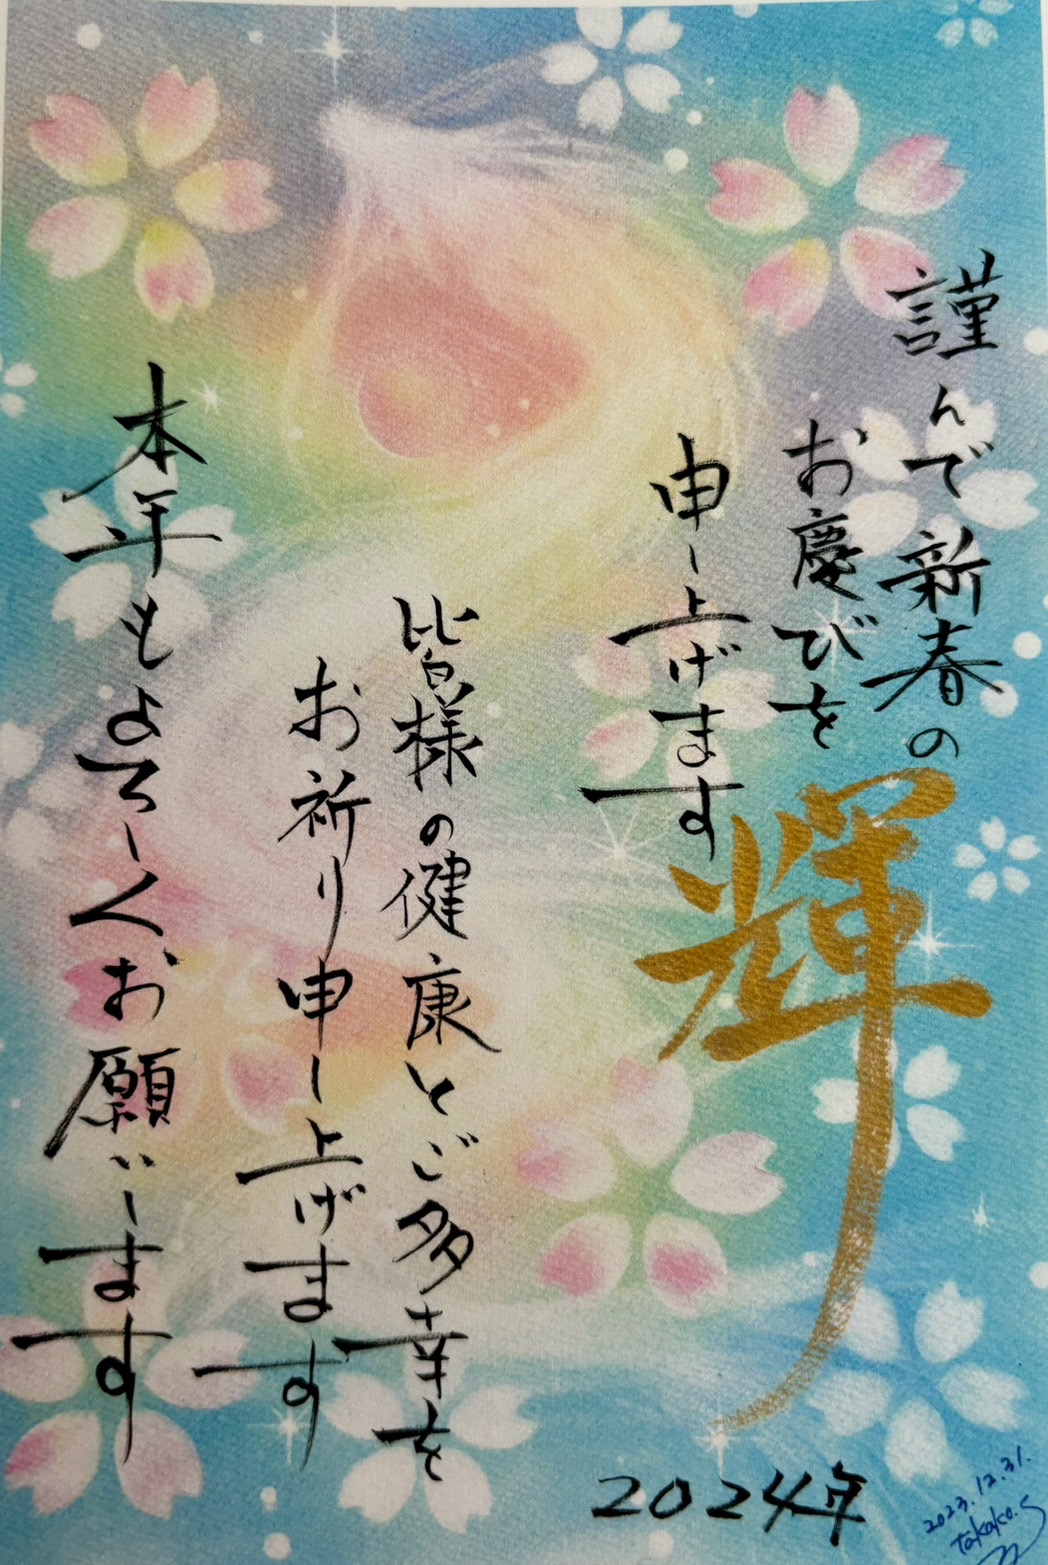 謹んで新春の
お慶びを
申し上げます
輝
皆様の健康とご多幸を
お祈り申し上げます
本年もよろしくお願いします
2024年
2023.12.31.
takako.S